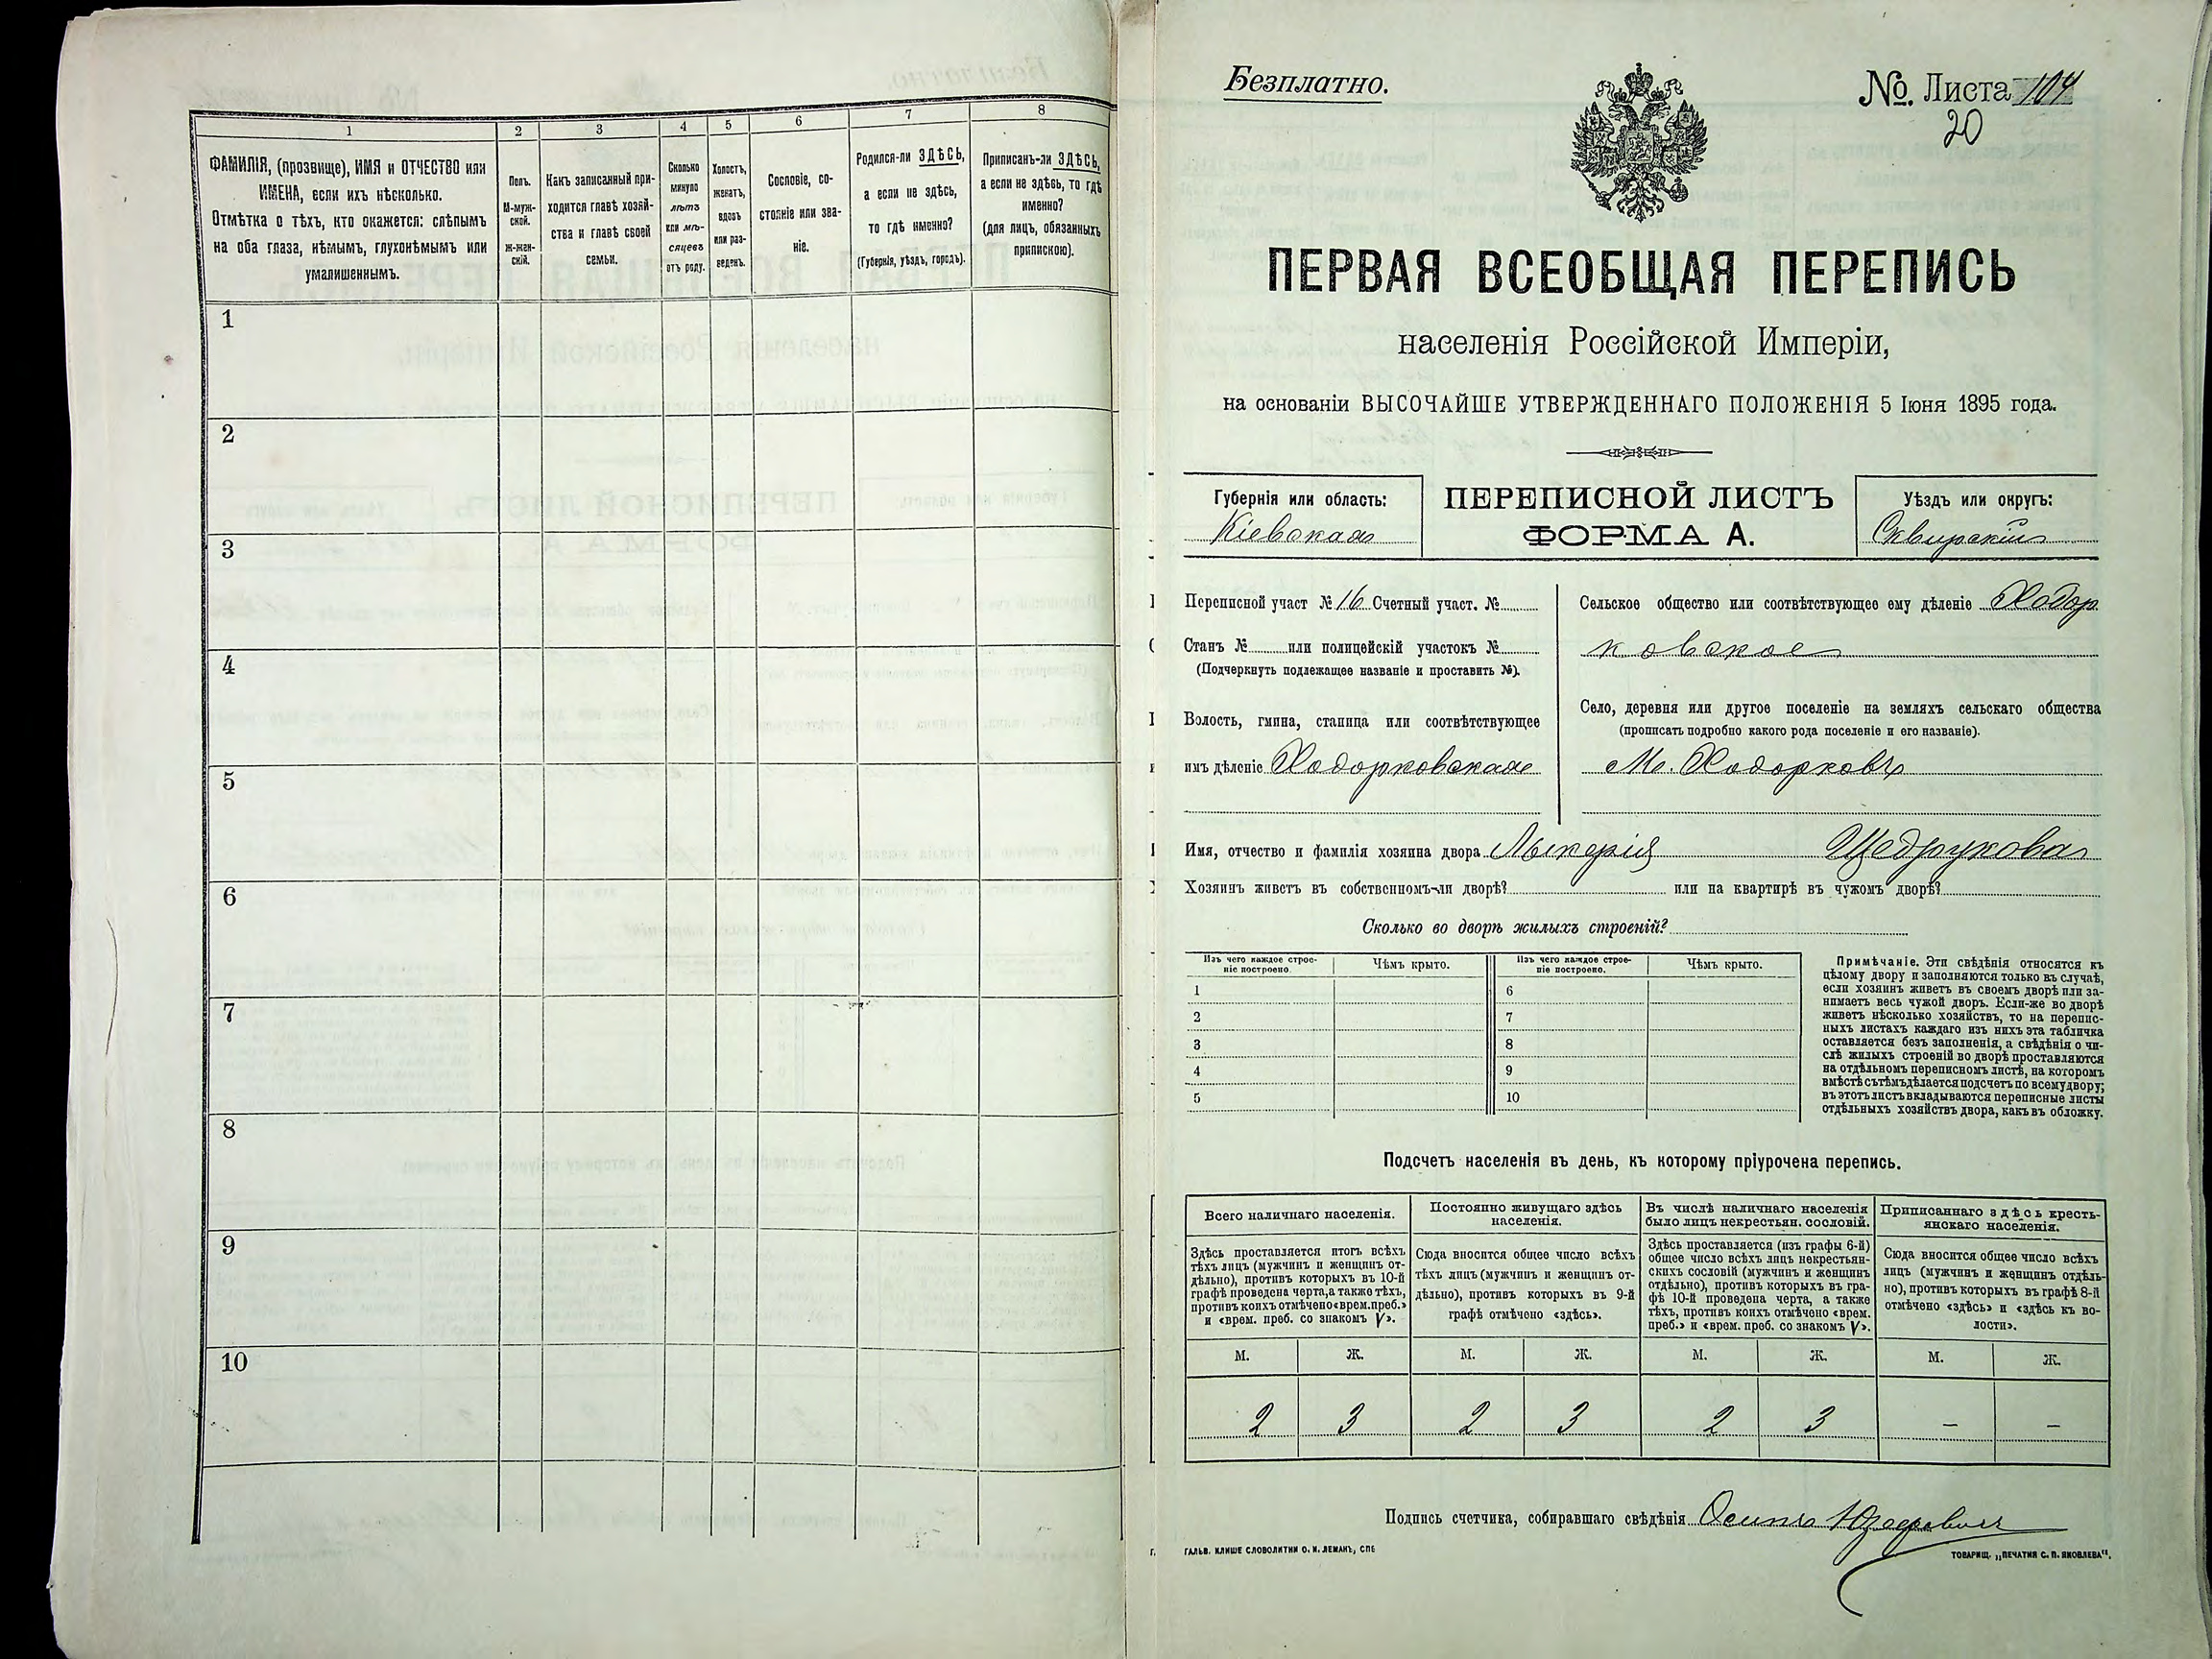 1
2
3
4
5
6
7
8
ФАМИЛІЯ, (прозвище), ИМЯ и ОТЧЕСТВО или
ИМЕНА, если ихъ нѣсколько.
Отмѣтка о тѣхъ, кто окажется: слѣпымъ
на оба глаза, нѣмымъ, глухонѣмымъ или
умалишеннымъ.
Полъ.
М-муж-
ской.
Ж-жен-
скій.
Какъ записанный при-
ходится главѣ хозяй-
ства и главѣ своей
семьи.
Сколько
минуло
лѣтъ
или мѣ-
сяцевъ
отъ роду.
Холостъ,
женатъ,
вдовъ
или раз-
веденъ.
Сословіе, со-
стояніе или зва-
ніе.
Родился-ли ЗДѢСЬ,
а если не здѣсь,
то гдѣ именно?
(Губернія, уѣздъ, городъ).
Приписанъ-ли ЗДѢСЬ,
а если не здѣсь, то гдѣ
именно?
(для лицъ, обязанныхъ
припискою).
1
2
3
4
5
6
7
8
9
10
Безплатно.
№. Листа 104
20
ПЕРВАЯ ВСЕОБЩАЯ ПЕРЕПИСЬ
населенія Россійской Имперіи,
на основаніи ВЫСОЧАЙШЕ УТВЕРЖДЕННАГО ПОЛОЖЕНІЯ 5 Іюня 1895 года.
Губернія или область:
Кіевская
ПЕРЕПИСНОЙ ЛИСТЪ
ФОРМА А.
Уѣздъ или округъ:
Сквирскій
Переписной участ № 16 Счетный участ. №
Станъ № или полицейскій участокъ №
(Подчеркнуть подлежащее названіе и проставить №).
Волость, гмина, станица или соотвѣтствующее
имъ дѣленіе Ходорковская
Сельское общество или соотвѣтствующее ему дѣленіе Ходор
ковское
Село, деревня или другое поселеніе на земляхъ сельскаго общества
(прописать подробно какого рода поселеніе и его названіе).
М. Ходорковъ
Имя, отчество и фамилія хозяина двора Лыкерія Щедрукова
Хозяинъ живетъ въ собственномъ-ли дворѣ? или на квартирѣ въ чужомъ дворѣ?
Сколько во дворѣ жилыхъ строеній?
Изъ чего каждое строе-
ніе построено
Чѣмъ крыто.
Изъ чего каждое строе-
ніе построено.
Чѣмъ крыто.
1
2
3
4
5
6
7
8
9
10
Примѣчаніе. Эти свѣдѣнія относятся къ
цѣлому двору и заполняются только въ случаѣ,
если хозяинъ живетъ въ своемъ дворѣ или за-
нимаетъ весь чужой дворъ. Если-же во дворѣ
живетъ нѣсколько хозяйствъ, то на перепис-
ныхъ листахъ каждаго изъ нихъ эта табличка
оставляется безъ заполненія, а свѣдѣнія о чи-
слѣ жилыхъ строеній во дворѣ проставляются
на отдѣльномъ переписномъ листѣ, на которомъ
вмѣстѣ съ тѣмъ дѣлается подсчетъ по всему двору;
въ этотъ листъ вкладываются переписные листы
отдѣльныхъ хозяйствъ двора, какъ въ обложку.
Подсчетъ населенія въ день, къ которому пріурочена перепись.
Всего наличнаго населенія.
Здѣсь проставляется итогъ всѣхъ
тѣхъ лицъ (мужчинъ и женщинъ от-
дѣльно), противъ которыхъ въ 10-й
графѣ проведена черта, а также тѣхъ,
противъ коихъ отмѣчено «врем. преб.»
и «врем. преб. со знакомъ V».
Постоянно живущаго здѣсь
населенія.
Сюда вносится общее число всѣхъ
тѣхъ лицъ (мужчинъ и женщинъ от-
дѣльно), противъ которыхъ въ 9-й
графѣ отмѣчено «здѣсь».
Въ числѣ наличнаго населенія
было лицъ некрестьян. сословій.
Здѣсь проставляется (изъ графы 6-й)
общее число всѣхъ лицъ некрестьян-
скихъ сословій (мужчинъ и женщинъ
отдѣльно), противъ которыхъ въ гра-
фѣ 10-й проведена черта, а также
тѣхъ, противъ коихъ отмѣчено «врем.
преб.» и «врем. преб. со знакомъ V».
Приписаннаго здѣсь кресть-
янскаго населенія.
Сюда вносится общее число всѣхъ
лицъ (мужчинъ и женщинъ отдѣль-
но), противъ которыхъ въ графѣ 8-й
отмѣчено «здѣсь» и «здѣсь къ во-
лости».
М. Ж. М. Ж. М. Ж. М. Ж.
2 3 2 3 2 3 – –
Подпись счетчика, собиравшаго свѣдѣнія Осипъ
ГАЛЬВ. КЛИШЕ СЛОВОЛИТНИ О. И. ЛЕМАНЪ, СПБ
ТОВАРИЩ. „ПЕЧАТНЯ С. П. ЯКОВЛЕВА".